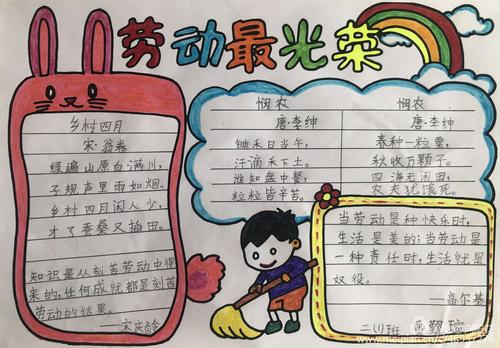 劳动最光荣
乡村四月
宋·翁卷
绿遍山原白满川，
子规声里雨如烟。
乡村四月闲人少，
才了蚕桑又插田。
知识是从刻苦劳动中得
来的，任何成就都是刻苦
劳动的结果。
——宋庆龄
悯农
唐·李绅
锄禾日当午，
汗滴禾下土。
谁知盘中餐，
粒粒皆辛苦。
悯农
唐·李绅
春种一粒粟，
秋收万颗子。
四海无闲田，
农夫犹饿死。
当劳动是种快乐时，
生活是美的；当劳动是
一种责任时，生活就是
奴役。
——高尔基
二（1）班